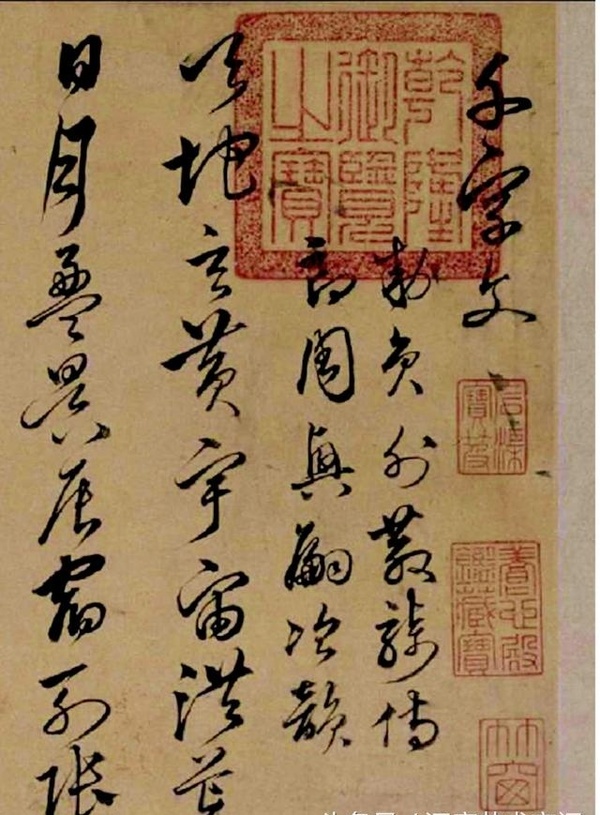 千字文
乾隆御覽之寶
石渠寶笈
養心殿鑑藏寶
勅員外散騎侍
郎周興嗣次韻
天地玄黄宇宙洪荒
日月盈昃辰宿列張